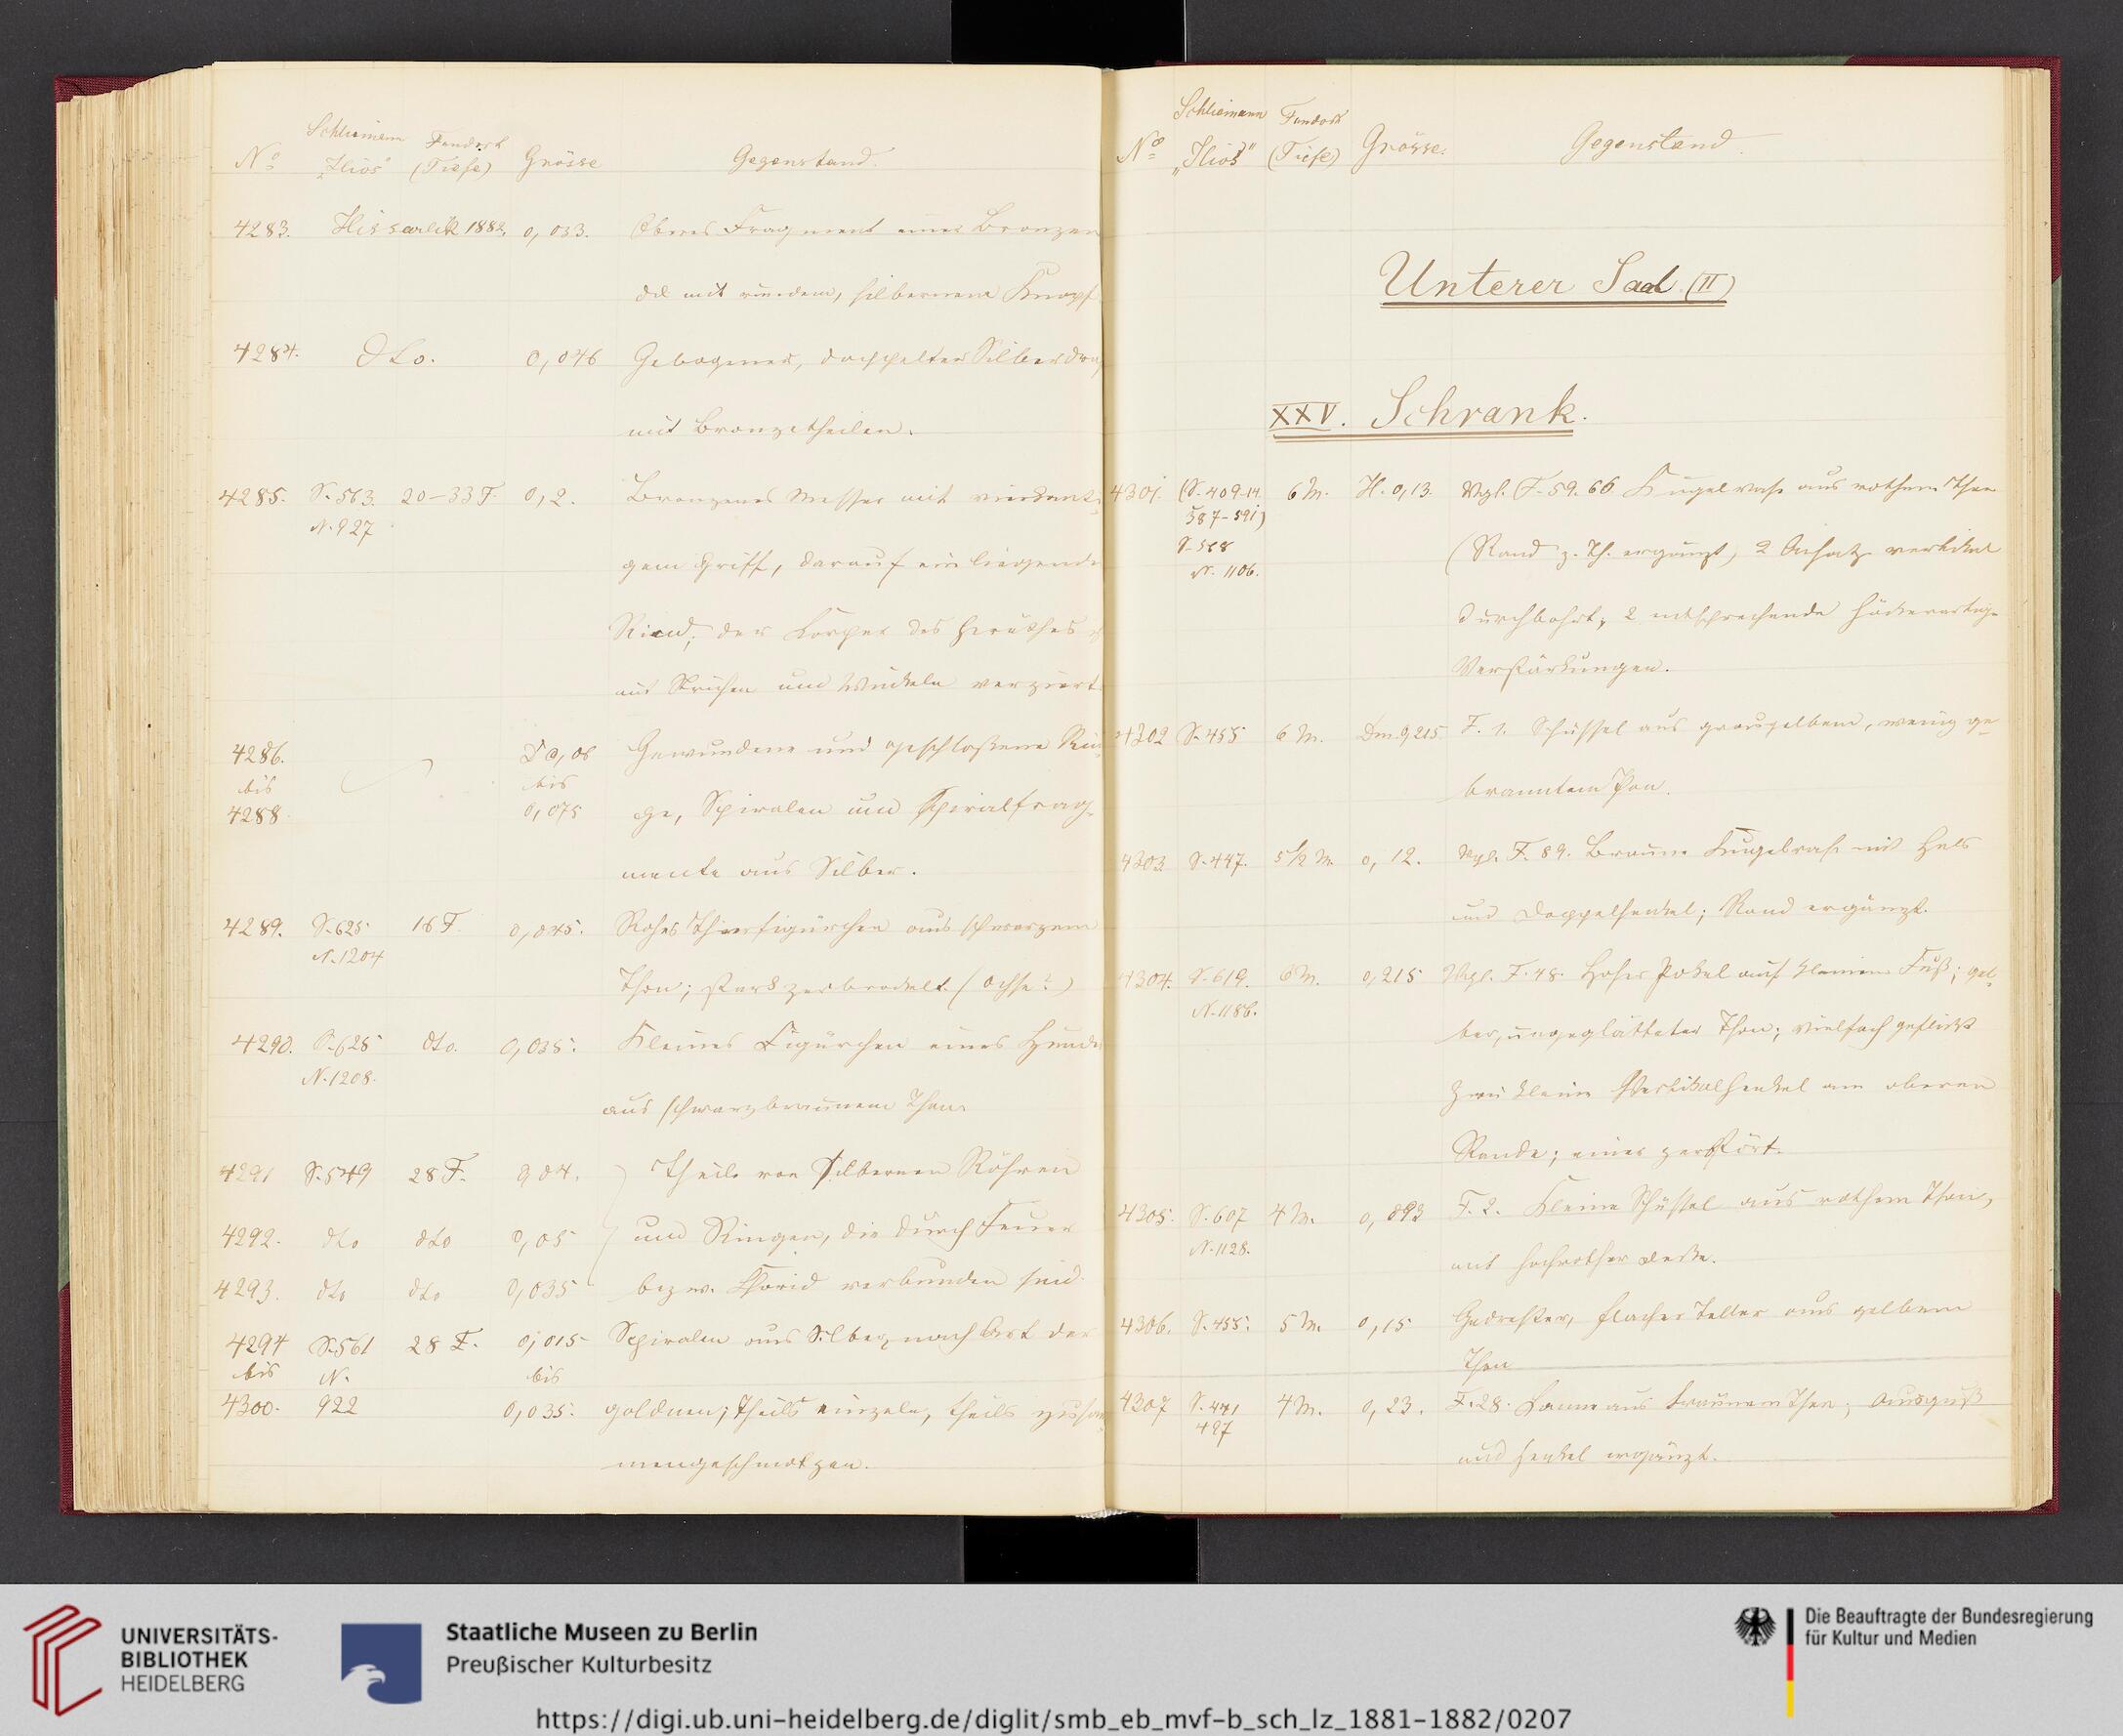 Schliemann Fundort
No "Ilios" (Tiefe) Grösse Gegenstand.
4283. Hissarlik 1882. 0,033. Oberes Fragment einer Bronzena-
del mit rundem, silbernem Knopf
4284. dto. 0,046 Gebogener, doppelter Silberdra
mit Bronzetheilen.
4285. S. 563. 20-33 F. 0,2. Bronzenes Messer mit
N. 927
gem Griff, darauf ein liegende
Rind; der Körper des Geräthes
mit Strichen und Winkeln verziert
4286. 0,05 Gewundene und geschloßene Rin-
bis bis
4288. 0,075 ge, Spiralen und Spiralfrag-
mente aus Silber.
4289. S. 625 16 F. 0,045. Rohes Thierfigürchen aus schwarzem
N. 1204
Thon; stark zerbrockelt (Ochse?)
4290. S. 625 dto. 0,035. Kleines Figürchen eines Hundes
N. 1208.
aus schwarzbraunem Thon
4291 S. 549 28 F. 0,04. Theile von silbernen Röhren
4292. dto dto 0,05 und Ringen, die durch Feuer
4293. dto dto 0,035 bezw. Chlorid verbunden sind.
4294 S. 561 28 F. 0,015 Spiralen aus Silber, nach Art der
bis N. bis
4300. 922 0,035. goldnen; theils einzeln, theils zusam-
mengeschmolzen.
Schliemann Fundort
No "Ilios" (Tiefe) Grösse. Gegenstand.
Unterer Saal (II)
XXV. Schrank.
4301. (S. 409-14 6 M. H. 0,13. Vgl. F. 59. 66 Kugelvase aus rothem Thon
587-591)
S. 568
N. 1106.
(Rand z. Th. ergänzt, 2 Ansatz vertikal
durchbohrt; 2 entsprechende höckerartige
Verstärkungen.
4302 S. 455 6 M. Dm 0,215 F. 1. Schüssel aus graugelbem, wenig ge-
branntem Thon.
4303. S. 447. 5 1/2 M. 0,12. Vgl. F. 89. Braune Kugelvase mit Hals
und Doppelhenkel; Rand ergänzt.
4304. S. 619. 6 M. 0,215 Vgl. F. 48. Hoher Pokal auf kleinem Fuß; gel-
N. 1186.
ber, ungeglätteter Thon; vielfach geflickt
Zwei kleine Vertikalhenkel am oberen
Rande; einer zerstört.
4305. S. 607 4 M. 0,093 F. 2. Kleine Schüssel aus rothem Thon,
N. 1128.
mit hochrother
4306. S. 455. 5 M. 0,15 Gedrehter, flacher Teller aus gelbem
Thon
4307 S. 441 4 M. 0,23. F. 28. Kanne aus braunem Thon; Ausguß
497
und Henkel ergänzt.
UNIVERSITÄTS-
BIBLIOTHEK
HEIDELBERG
Staatliche Museen zu Berlin
Preußischer Kulturbesitz
Die Beauftragte der Bundesregierung
für Kultur und Medien
https://digi.ub.uni-heidelberg.de/diglit/smb_eb_mvf-b_sch_lz_1881-1882/0207